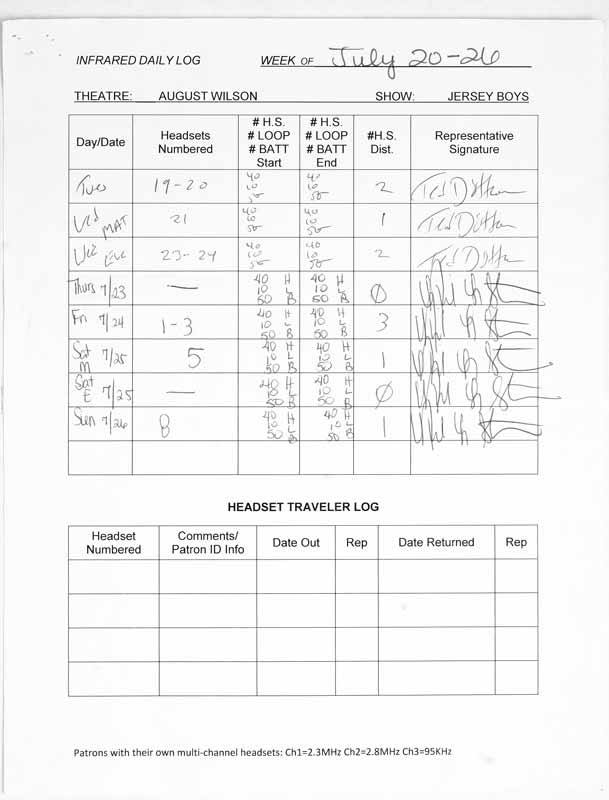 INFRARED DAILY LOG WEEK OF July 20-26
THEATRE: AUGUST WILSON SHOW: JERSEY BOYS
Day/Date Headsets Numbered # H.S. # LOOP # BATT Start # H.S. # LOOP # BATT End #H.S. Dist. Representative Signature
Tues 19-20 40 10 50 40 10 50 2 Ted
Wed MAT 21 40 10 50 40 10 50 1 Ted
Wed Eve 23-24 40 10 50 40 10 50 2 Ted
Thurs 7/23 — 40 H 10 L 50 B 40 H 10 L 50 B Ø
Fri 7/24 1-3 40 H 10 L 50 B 40 H 10 L 50 B 3
Sat M 7/25 5 40 H 10 L 50 B 40 H 10 L 50 B 1
Sat E 7/25 — 40 H 10 L 50 B 40 H 10 L 50 B Ø
Sun 7/26 8 40 H 10 L 50 B 40 H 10 L 50 B 1
HEADSET TRAVELER LOG
Headset Numbered Comments/ Patron ID Info Date Out Rep Date Returned Rep
Patrons with their own multi-channel headsets: Ch1=2.3MHz Ch2=2.8MHz Ch3=95KHz